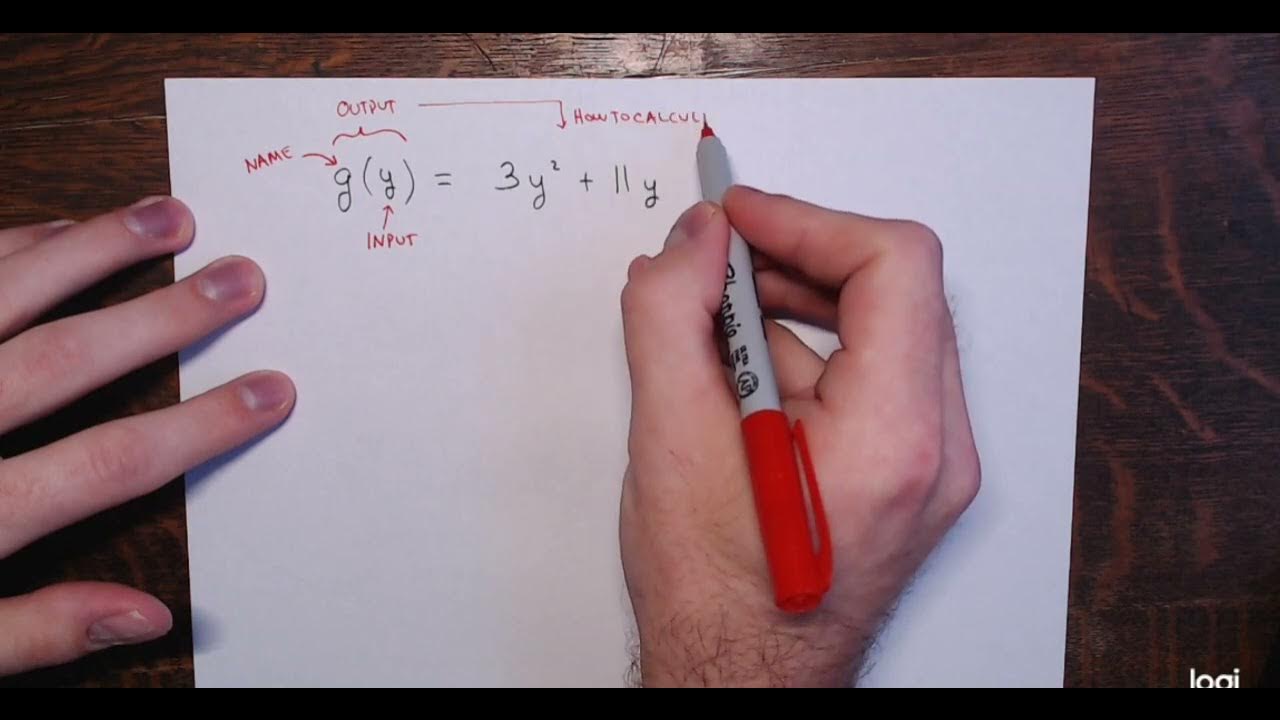 OUTPUT
HOW TO CALCUL
NAME
g(y) = 3y² + 11y
INPUT
Sharpie
logi